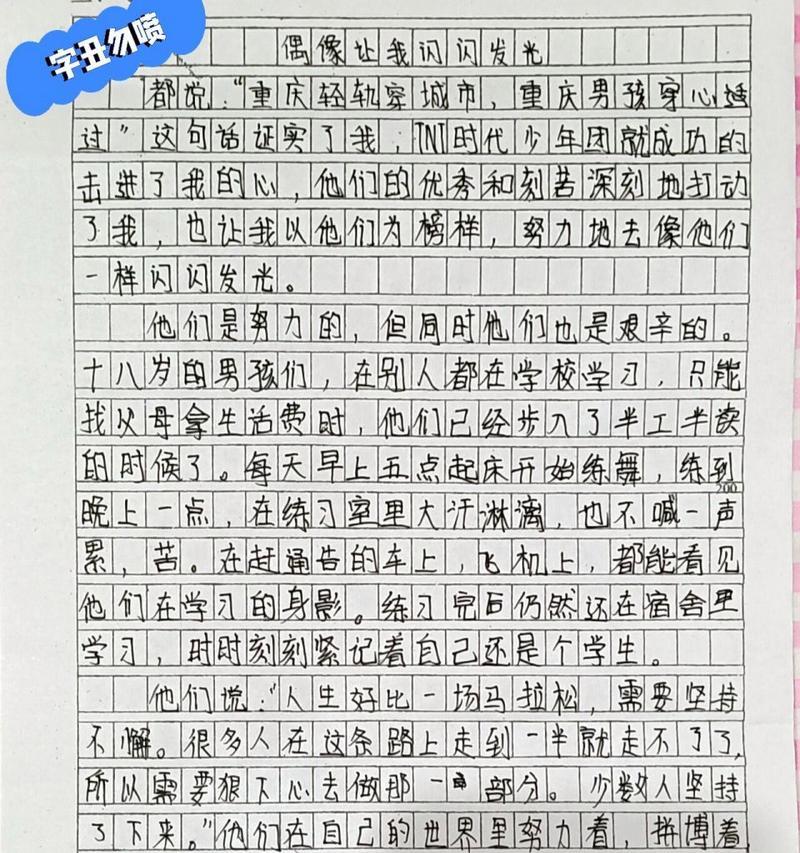 字丑勿喷
偶像让我闪闪发光
都说:“重庆轻轨穿城市,重庆男孩穿心透
过”这句话证实了我,TNT时代少年团就成功的
击进了我的心,他们的优秀和刻苦深刻地打动
了我,也让我以他们为榜样,努力地去像他们
一样闪闪发光。
他们是努力的,但同时他们也是艰辛的。
十八岁的男孩们,在别人都在学校学习,只能
找父母拿生活费时,他们已经步入了半工半读
的时候了。每天早上五点起床开始练舞,练到
200
晚上一点,在练习室里大汗淋漓,也不喊一声
累,苦。在赶通告的车上,飞机上,都能看见
他们在学习的身影。练习完后仍然还在宿舍里
学习,时时刻刻紧记着自己还是个学生。
他们说:“人生好比一场马拉松,需要坚持
不懈。很多人在这条路上走到一半就走不了了,
所以需要狠下心去做那一部分。少数人坚持
了下来。”他们在自己的世界里努力着,拼搏着